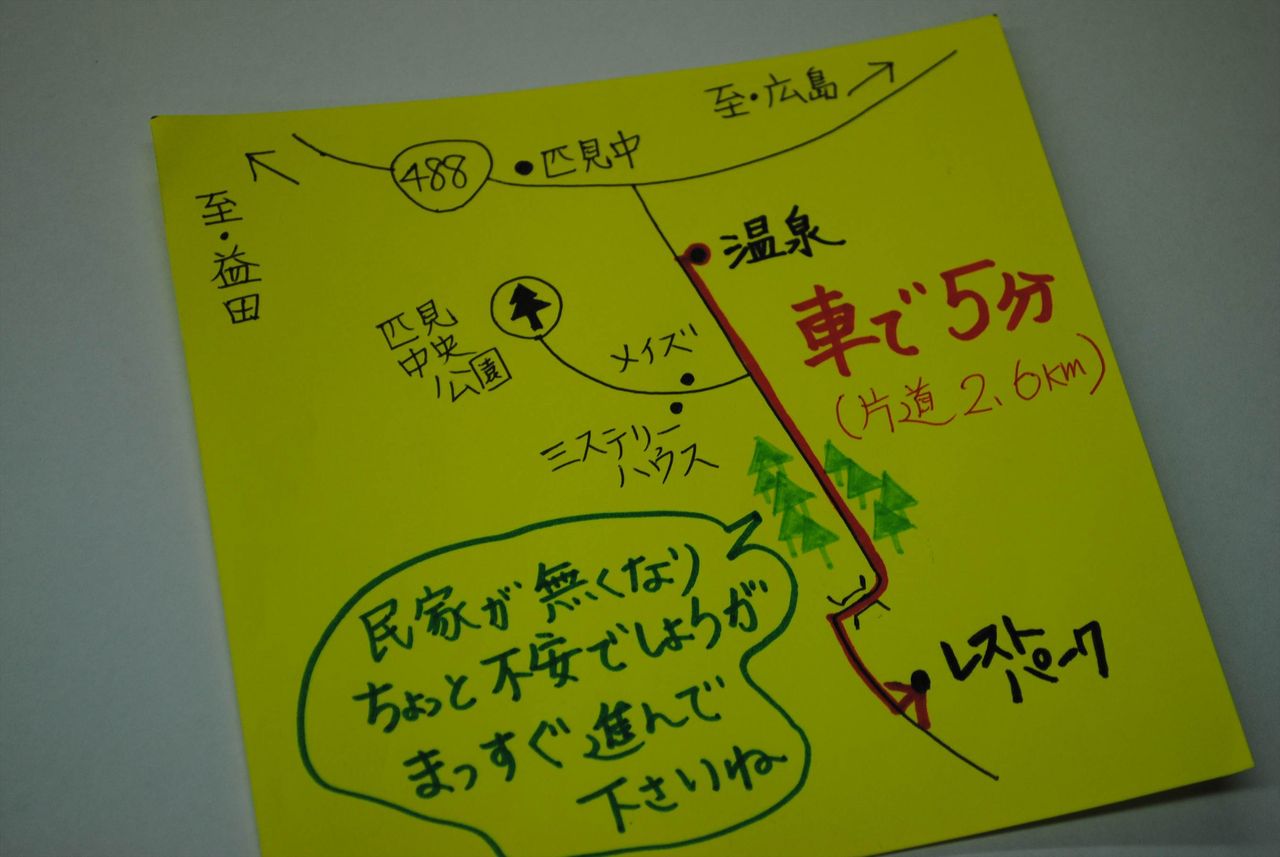 至・広島
488
匹見中
至・益田
温泉
車で5分
(片道2.6km)
匹見
中央
公園
メイズ
ミステリー
ハウス
民家が無くなり
ちょっと不安でしょうが
まっすぐ進んで
下さいね
レスト
パーク